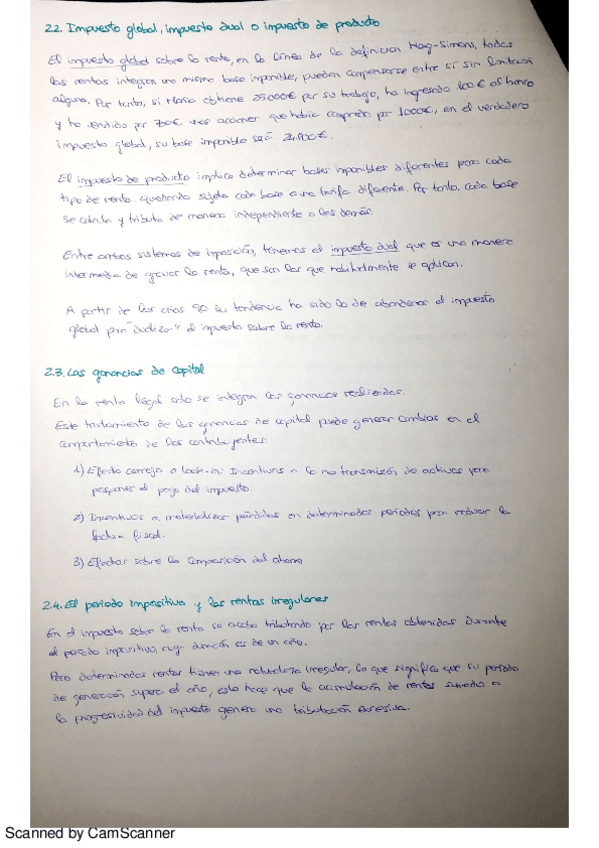 2.2. Impuesto global, impuesto dual o impuesto de producto
El impuesto global sobre la renta, en la línea de la definición Haig-Simons, todas
las rentas integran una misma base imponible, pueden compensarse entre sí sin limitación
alguna. Por tanto, si María obtiene 25.000€ por su trabajo, ha ingresado 100€ al banco
y ha vendido por 700€ unas acciones que había comprado por 1000€, en el verdadero
impuesto global, su base imponible será 24.800€.
El impuesto de producto implica determinar bases imponibles diferentes para cada
tipo de renta quedando sujeta cada base a una tarifa diferente. Por tanto, cada base
se calcula y tributa de manera independiente a las demás
Entre ambos sistemas de imposición, tenemos el impuesto dual que es una manera
intermedia de gravar la renta, que son las que habitualmente se aplican.
A partir de los años 90 la tendencia ha sido la de abandonar el impuesto
global para "dualizar" el impuesto sobre la renta.
2.3. Las ganancias de capital
En la renta legal solo se integran las ganancias realizadas.
Este tratamiento de las ganancias de capital puede generar cambios en el
comportamiento de los contribuyentes:
1) Efecto cerrojo o lock-in: Incentivos a la no transmisión de activos para
posponer el pago del impuesto.
2) Incentivos a materializar pérdidas en determinados períodos para reducir la
factura fiscal.
3) Efectos sobre la composición del ahorro
2.4. El período impositivo y las rentas irregulares
En el impuesto sobre la renta se acaba tributando por las rentas obtenidas durante
el período impositivo, cuya duración es de un año.
Pero determinadas rentas tienen una naturaleza irregular, lo que significa que su período
de generación supera el año, esto hace que la acumulación de rentas sumado a
la progresividad del impuesto genere una tributación excesiva.
Scanned by CamScanner